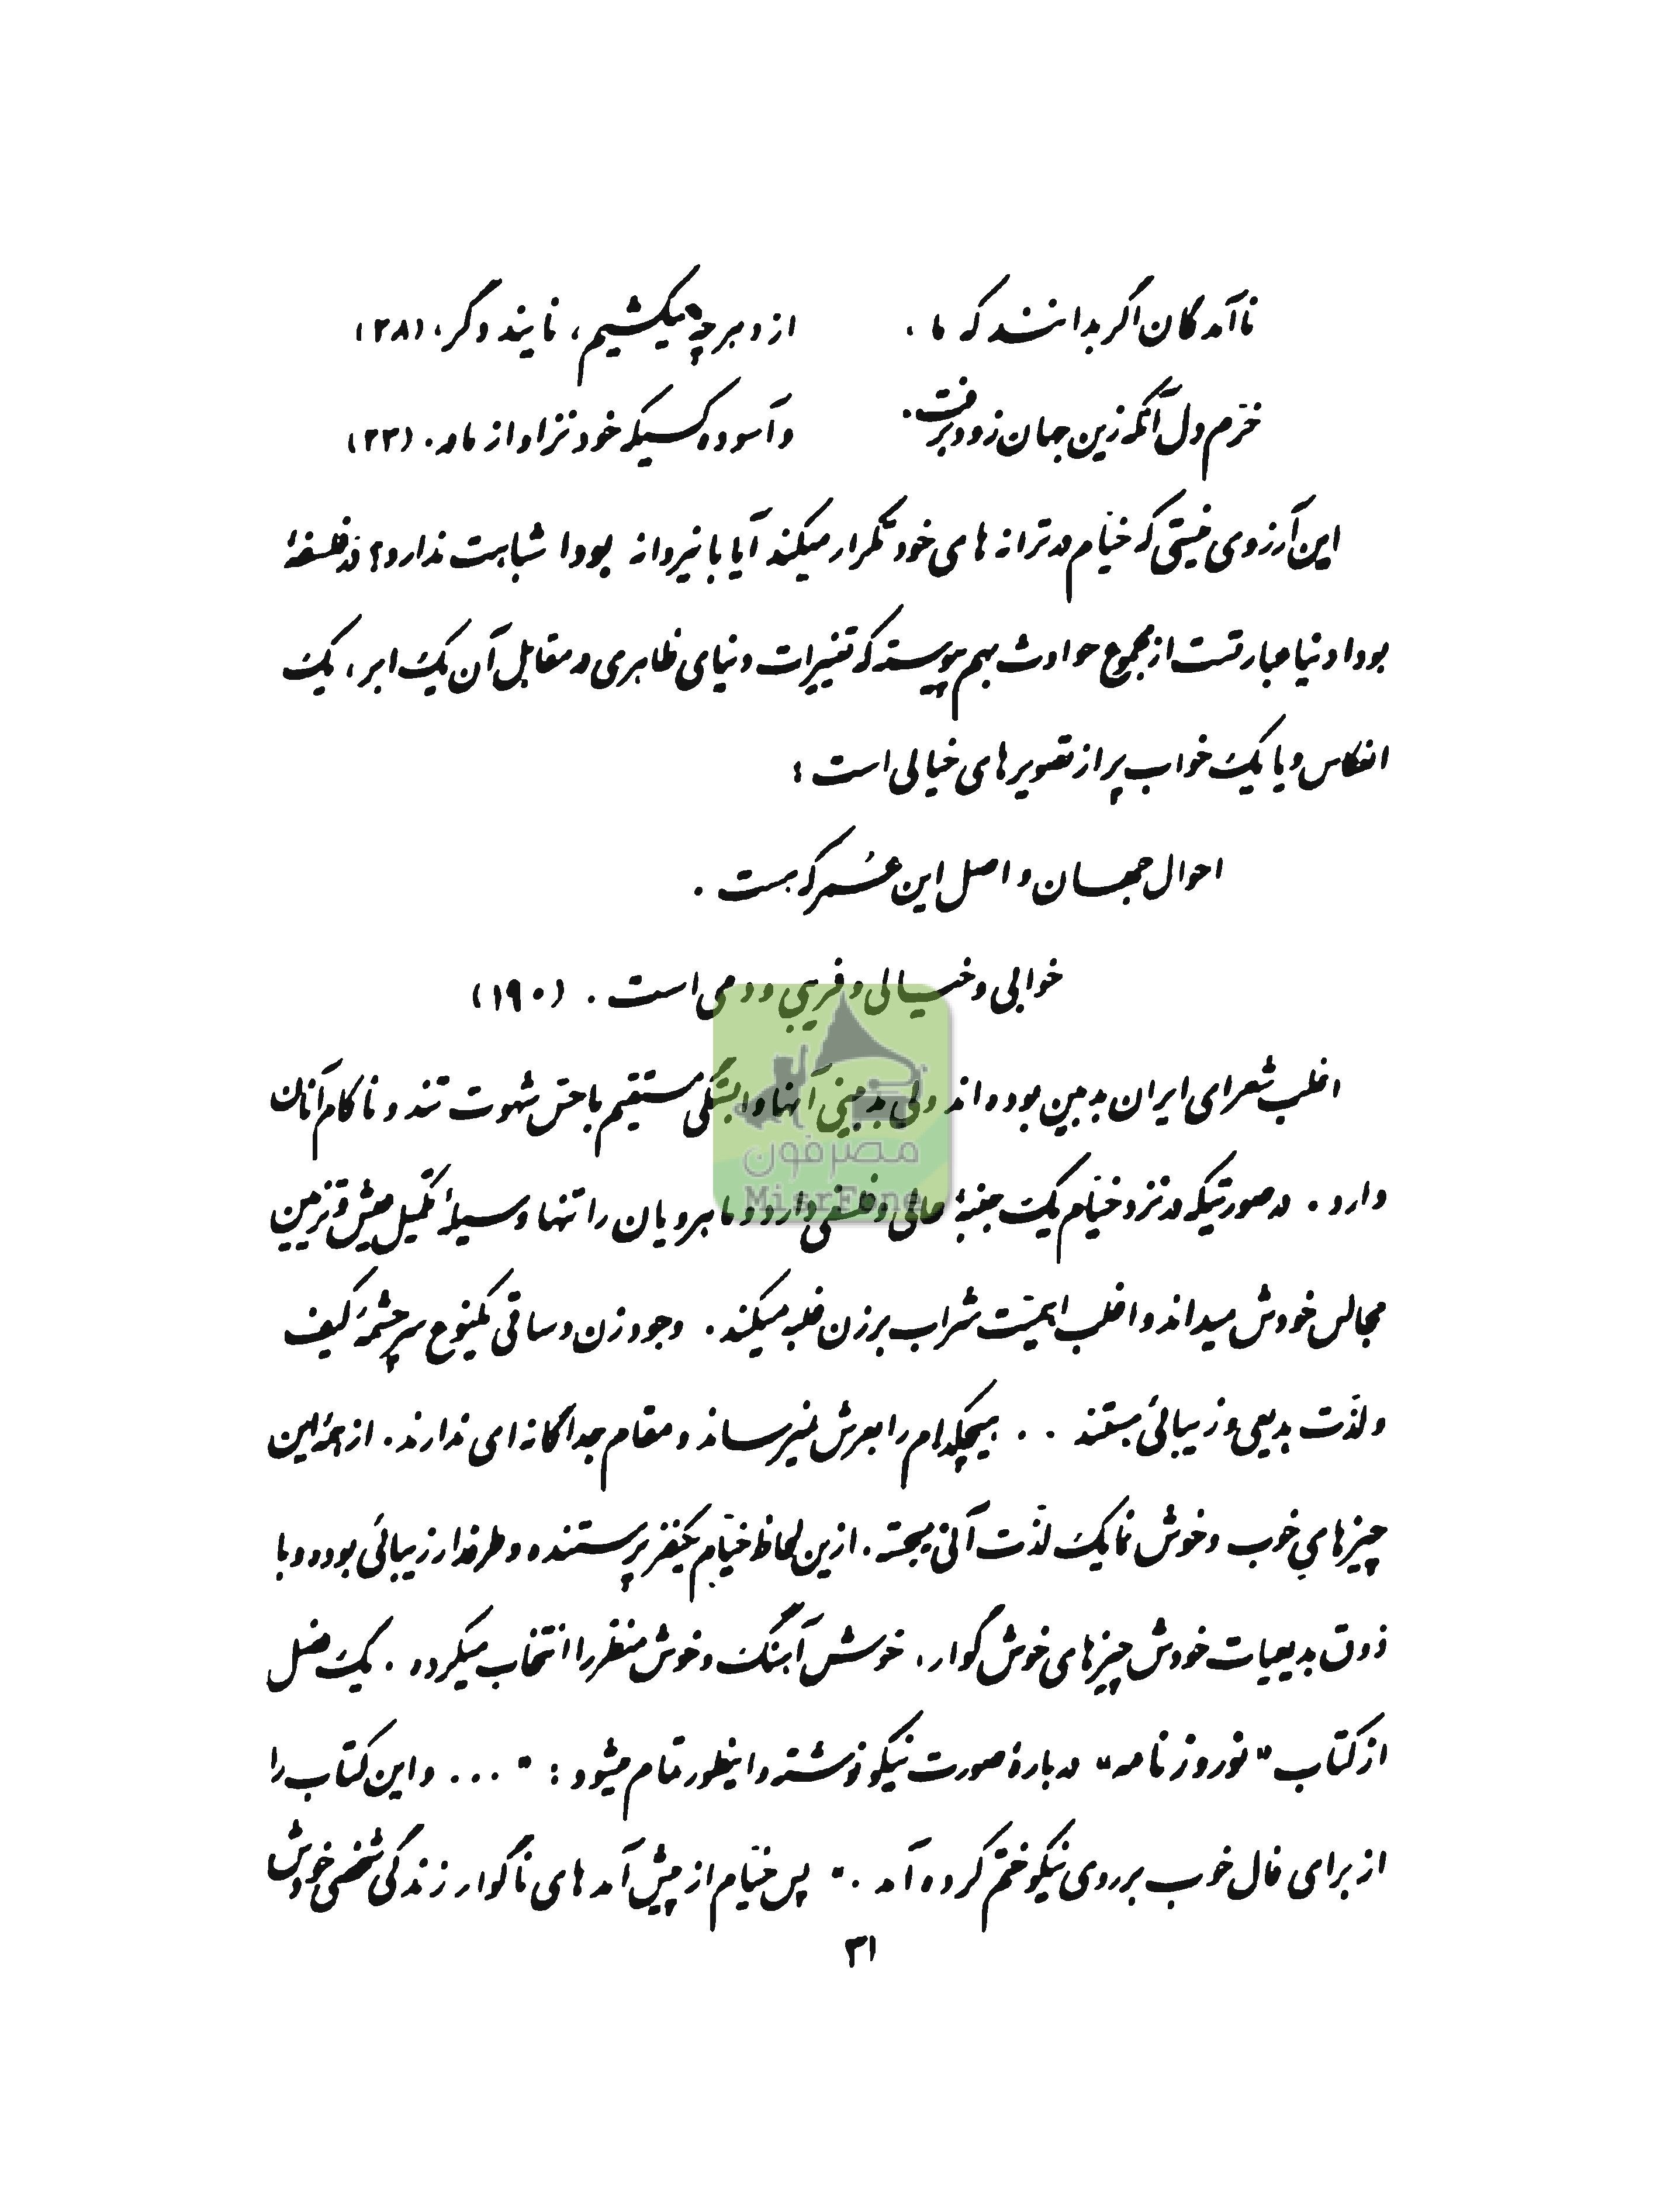 ناآمدگان اگر بدانند که ما، از دهر چه میکشیم، نایند دگر، (۲۸)
خرّم دل آنکه زین جهان زود برفت. و آسوده کسیکه خود نزاد از مادر. (۲۳)
این آرزوی نیستی که خیّام در ترانه های خود تکرار میکند آیا با نیروانه بودا شباهت ندارد؟ در فلسفهٔ
بودا دنیا عبارتست از مجموع حوادث بهم پیوسته که تغییرات دنیای ظاهری در مقابل آن یک ابر، یک
انعکاس و یا یک خواب پر از تصویرهای خیالی است:
احوال جهان و اصل این عُمر که هست.
خوابی و خیالی و فریبی و دمی است. (۱۹۰)
اغلب شعرای ایران بدبین بوده اند ولی بدبینی آنها وابستگی مستقیم با حسّ شهوت تند و ناکام آنان
دارد. در صورتیکه در نزد خیّام یک جنبهٔ عالی و فلسفی دارد و ماهرویان را تنها وسیلهٔ تکمیل عیش و تزیین
مجالس خودش میداند و اغلب اهمیّت شراب بر زن غلبه میکند. وجود زن و ساقی یکنوع سرچشمهٔ کیف
و لذّت بدیعی و زیبائی هستند .. هیچکدام را بعرش نمیرساند و مقام جداگانه ای ندارند. از همهٔ این
چیزهای خوب و خوش نما یک لذّت آنی میجسته. ازین لحاظ خیّام یکنفر پرستنده و طرفدار زیبائی بوده و با
ذوق بدیعیات خودش چیزهای خوش گوار، خوش آهنگ و خوش منظر را انتخاب میکرده. یک فصل
از کتاب "نوروز نامه" دربارهٔ صورت نیکو نوشته و اینطور تمام میشود: "... و این کتاب را
از برای فال خوب بر روی نیکو ختم کرده آمد." پس خیّام از پیش آمدهای ناگوار زندگی شخصی خودش
۳۱
مصرفون
MisrFone